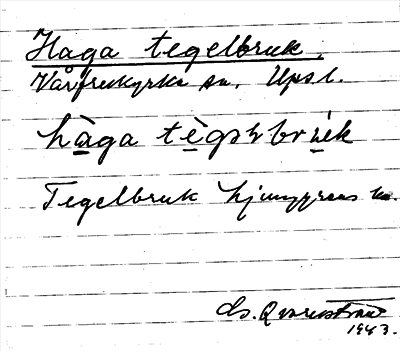 Haga tegelbruk.
Vårfrukyrka sn. Upsl.
hàga tègəlbrùk
Tegelbruk
Qvarnström
1943.